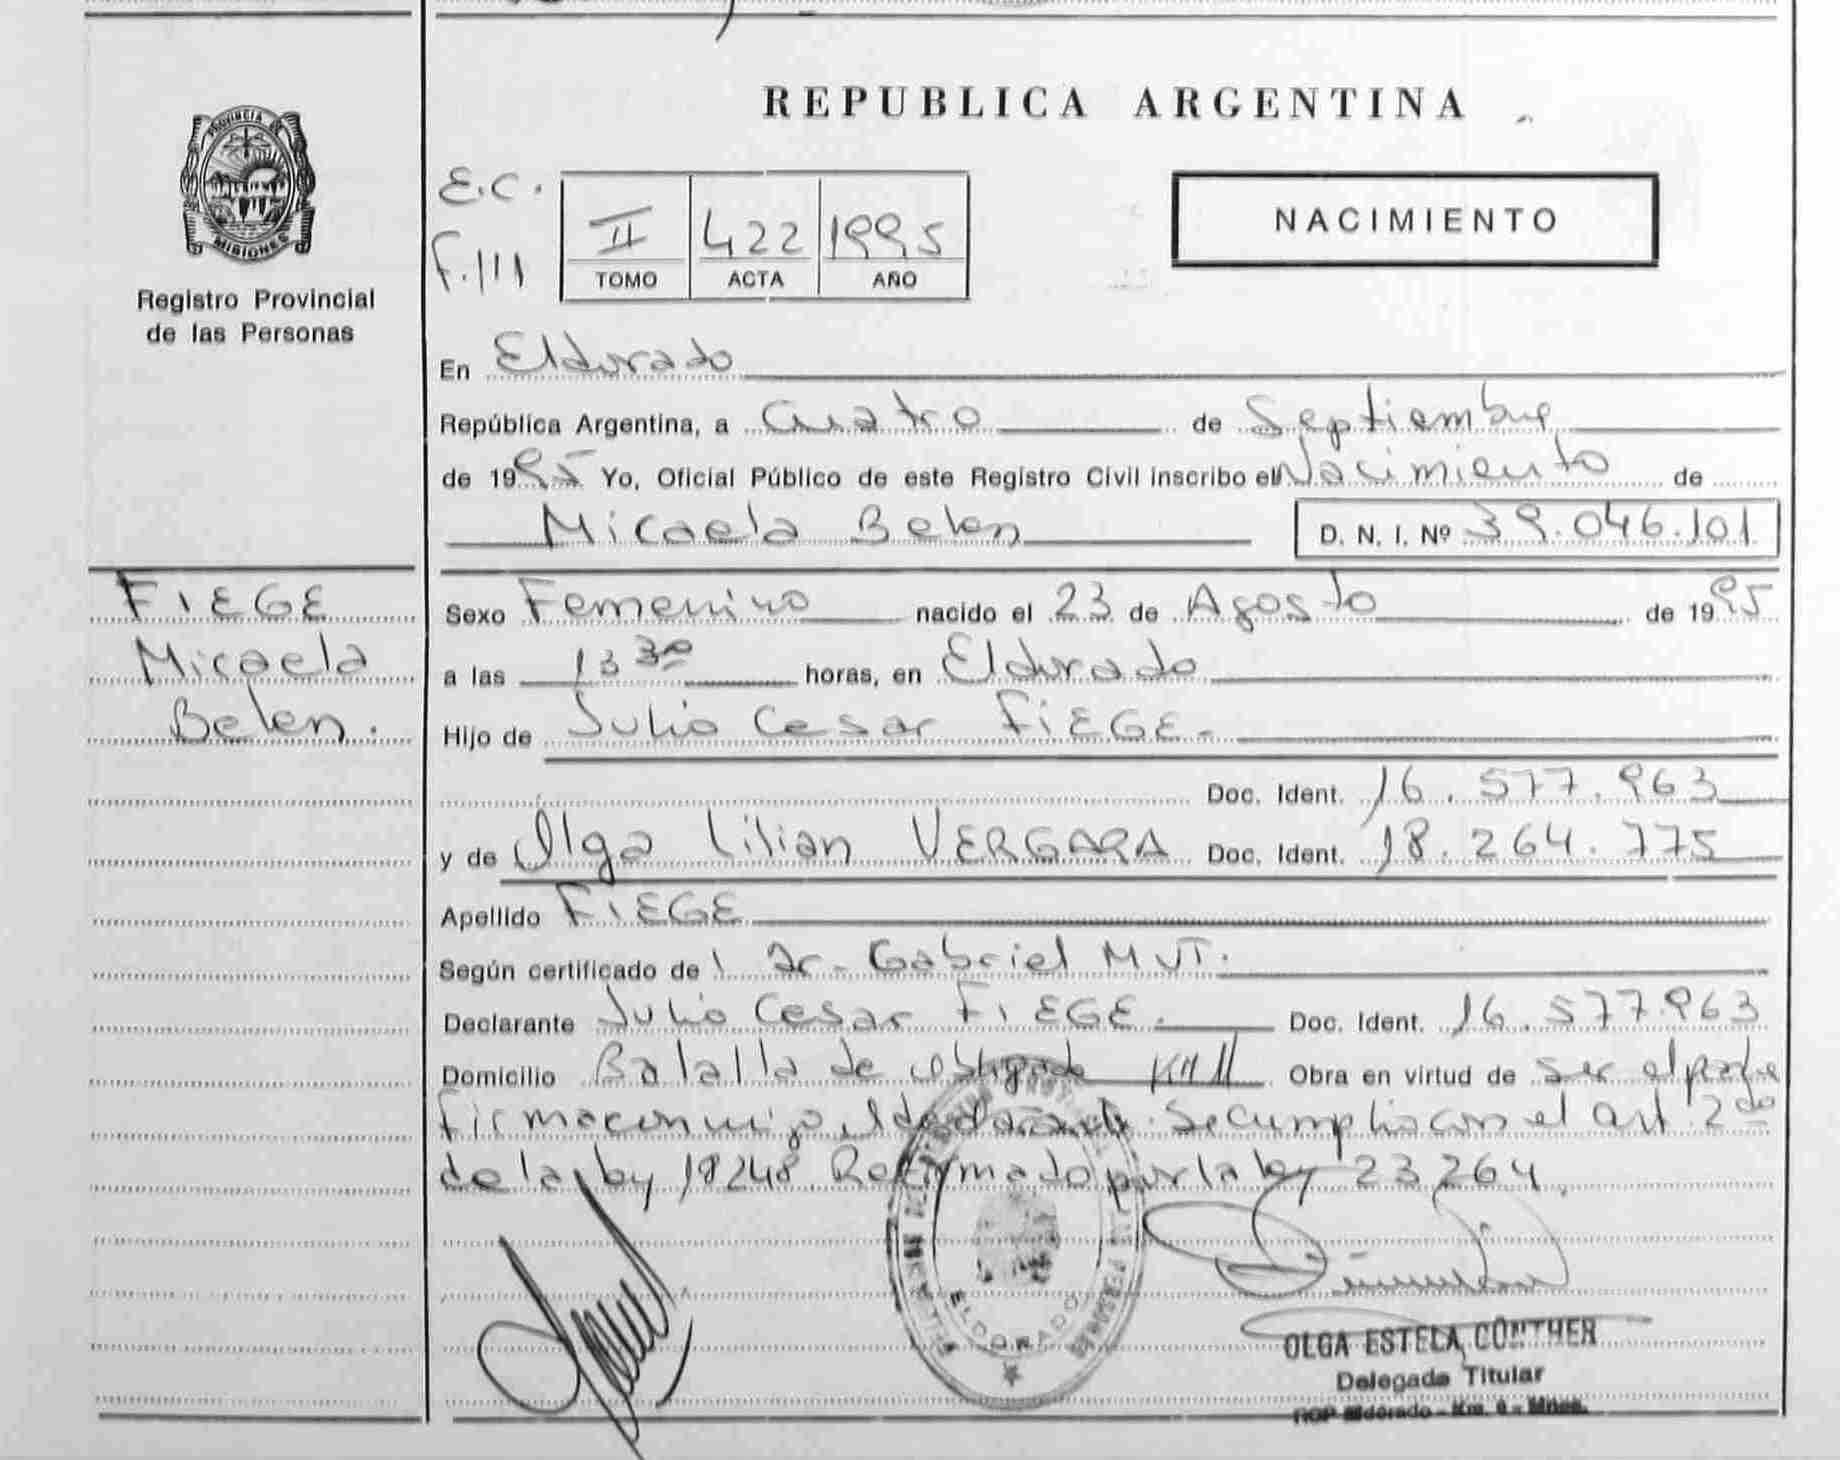 REPUBLICA ARGENTINA
PROVINCIA DE
MISIONES
Registro Provincial
de las Personas
E.C.
F.111
II 422 1995
TOMO ACTA AÑO
NACIMIENTO
En Eldorado
República Argentina, a Cuatro de Septiembre
de 1995 Yo, Oficial Público de este Registro Civil inscribo el Nacimiento de
Micaela Belen D. N. I. Nº 39.046.101
FIEGE
Micaela
Belen.
Sexo Femenino nacido el 23 de Agosto de 1995
a las 13 30 horas, en Eldorado
Hijo de Julio Cesar FIEGE.
Doc. Ident. 16.577.963
y de Olga Lilian VERGARA Doc. Ident. 18.264.775
Apellido FIEGE
Según certificado de Dr. Gabriel MUT.
Declarante Julio Cesar FIEGE. Doc. Ident. 16.577.963
Domicilio Batalla de obligado KM 11 Obra en virtud de ser el padre
firma conmigo el declarante. Se cumplio con el art 2do
de la ley 18248 Reformado por la ley 23264.
ELDORADO
OLGA ESTELA GÜNTHER
Delegada Titular
Eldorado - Km. 9 - Mnes.